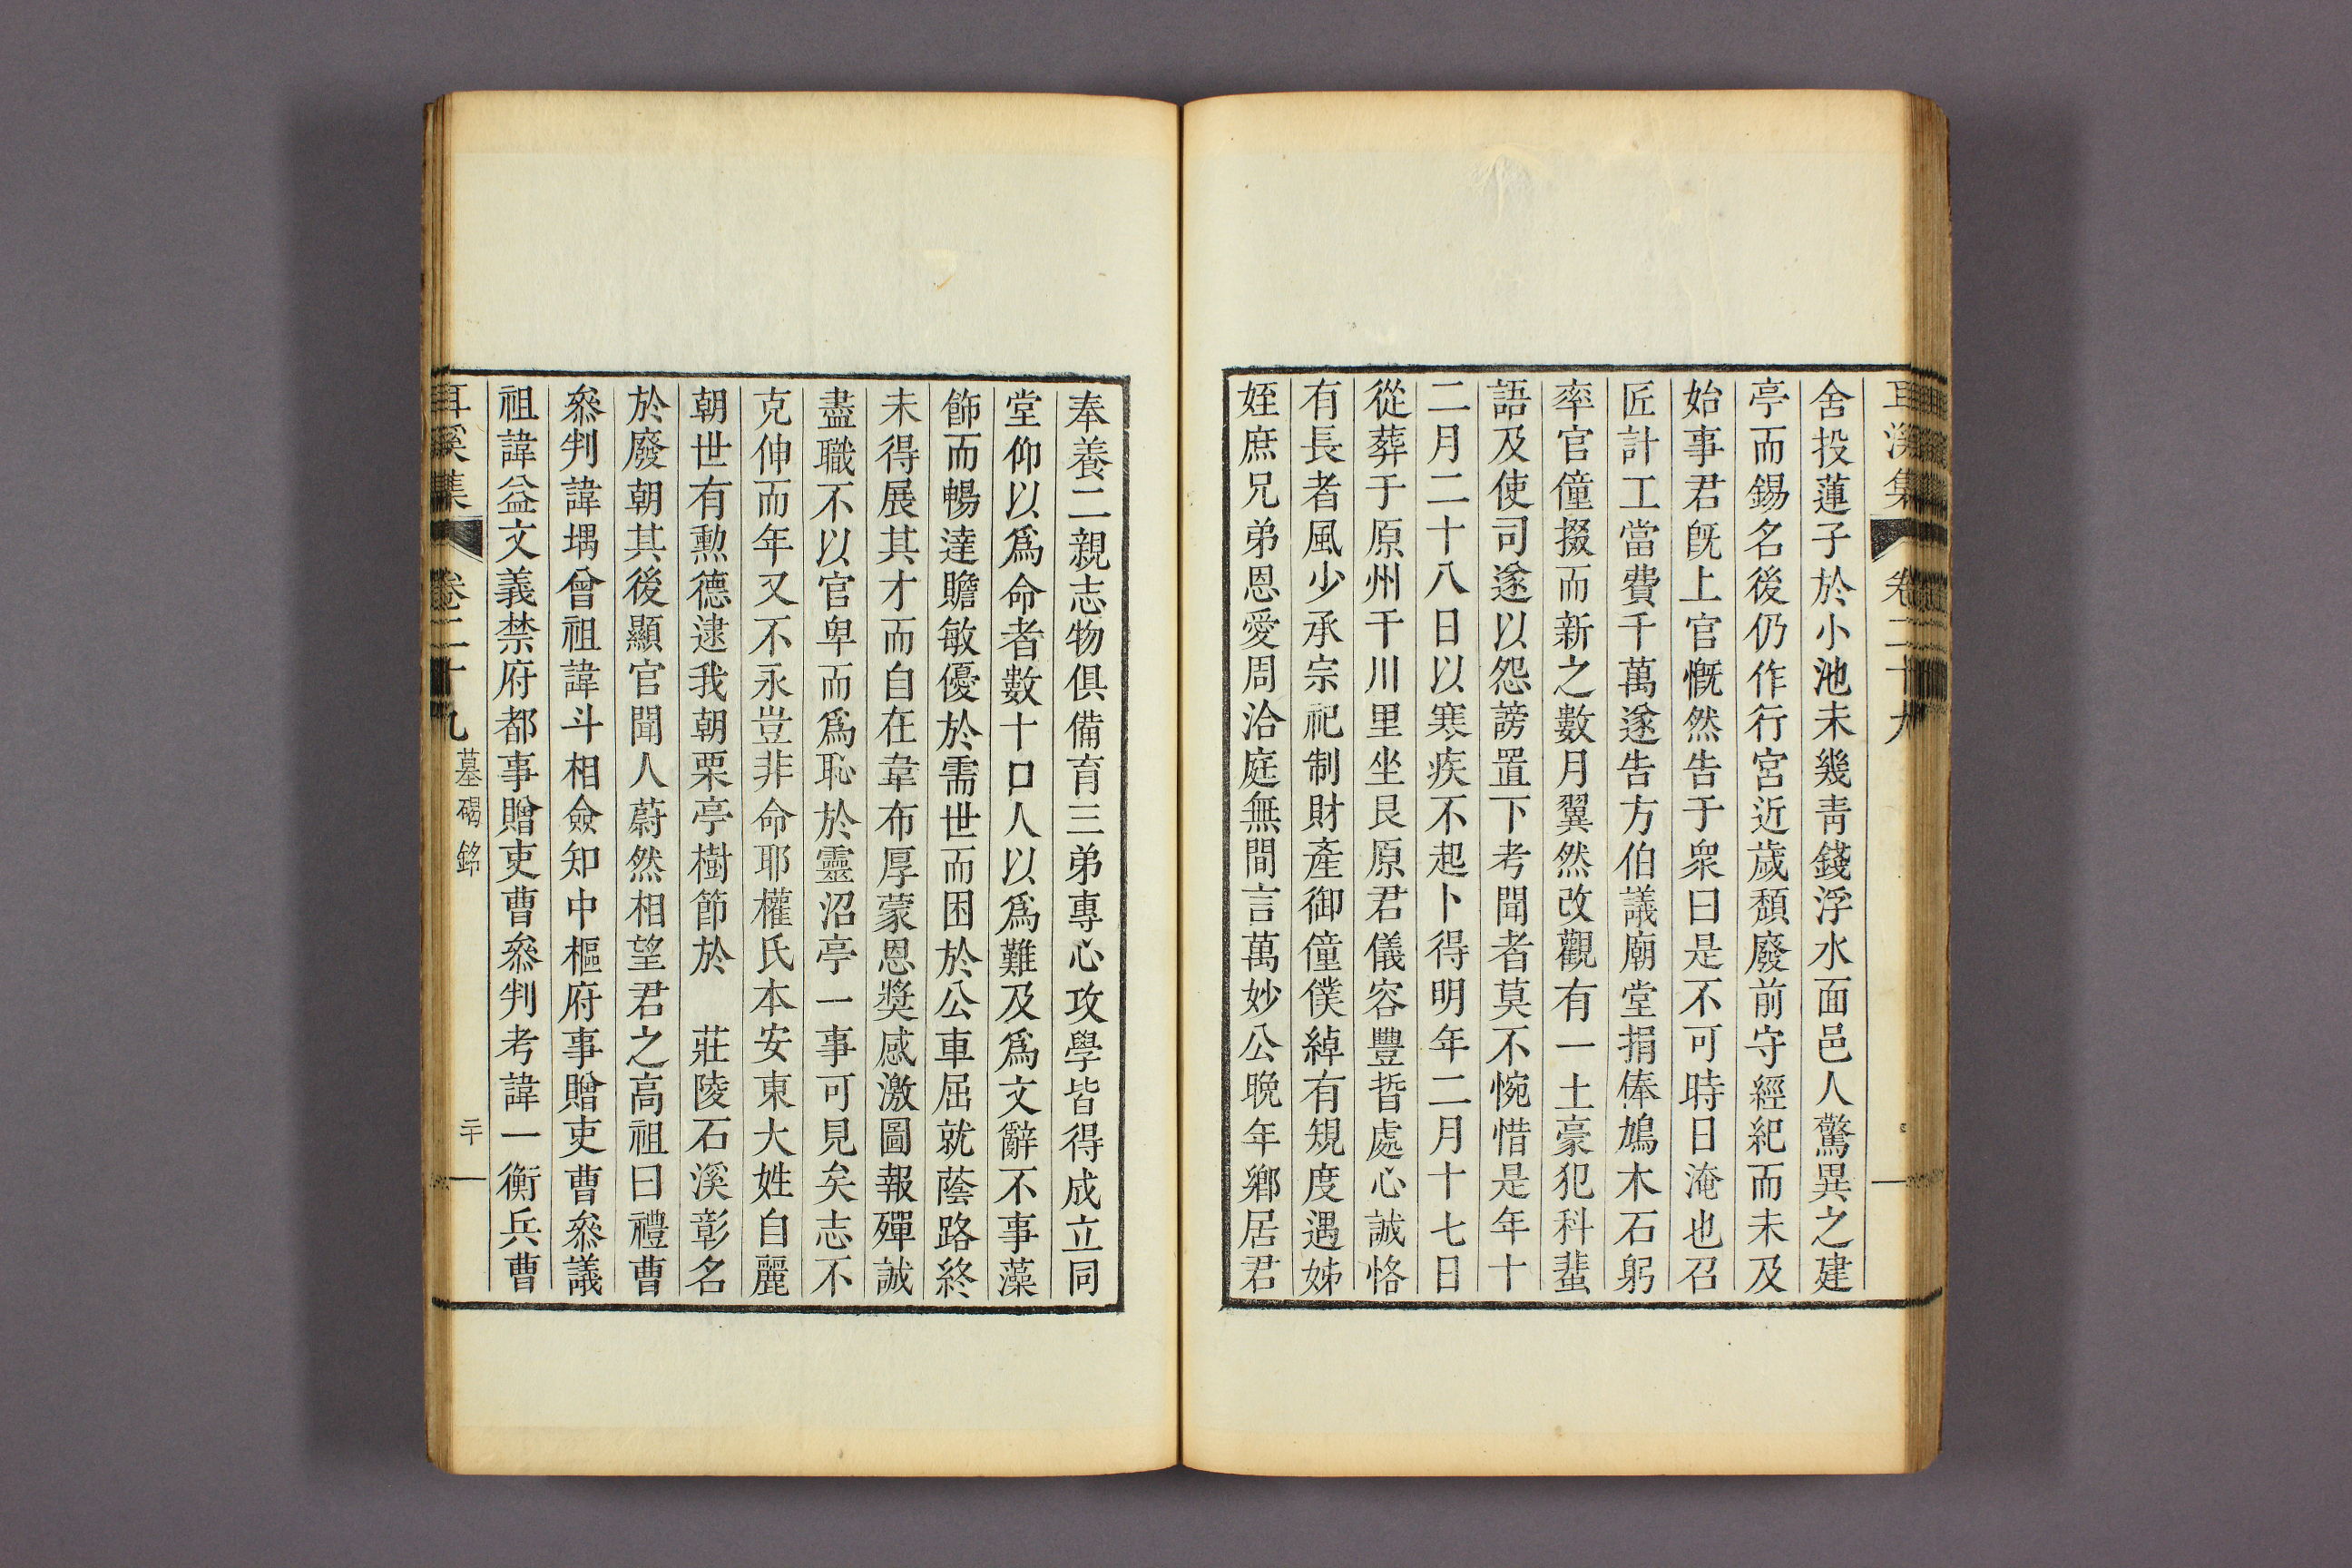 耳溪集 卷二十九
舍投蓮子於小池未幾靑錢浮水面邑人驚異之建
亭而錫名後仍作行宮近歲頹廢前守經紀而未及
始事君旣上官慨然告于衆曰是不可時日淹也召
匠計工當費千萬遂告方伯議廟堂捐俸鳩木石躬
率官僮掇而新之數月翼然改觀有一土豪犯科蜚
語及使司遂以怨謗置下考聞者莫不惋惜是年十
二月二十八日以寒疾不起卜得明年二月十七日
從葬于原州干川里坐艮原君儀容豐晳處心誠恪
有長者風少承宗祀制財產御僮僕綽有規度遇姊
姪庶兄弟恩愛周洽庭無間言萬妙公晩年鄕居君
奉養二親志物俱備育三弟專心攻學皆得成立同
堂仰以爲命者數十口人以爲難及爲文辭不事藻
飾而暢達贍敏優於需世而困於公車屈就蔭路終
未得展其才而自在韋布厚蒙恩奬感激圖報殫誠
盡職不以官卑而爲恥於靈沼亭一事可見矣志不
克伸而年又不永豈非命耶權氏本安東大姓自麗
朝世有勳德逮我朝栗亭樹節於 莊陵石溪彰名
於廢朝其後顯官聞人蔚然相望君之高祖曰禮曹
叅判諱堣曾祖諱斗相僉知中樞府事贈吏曹叅議
祖諱益文義禁府都事贈吏曹叅判考諱一衡兵曹
耳溪集 卷二十九 墓碣銘 二十